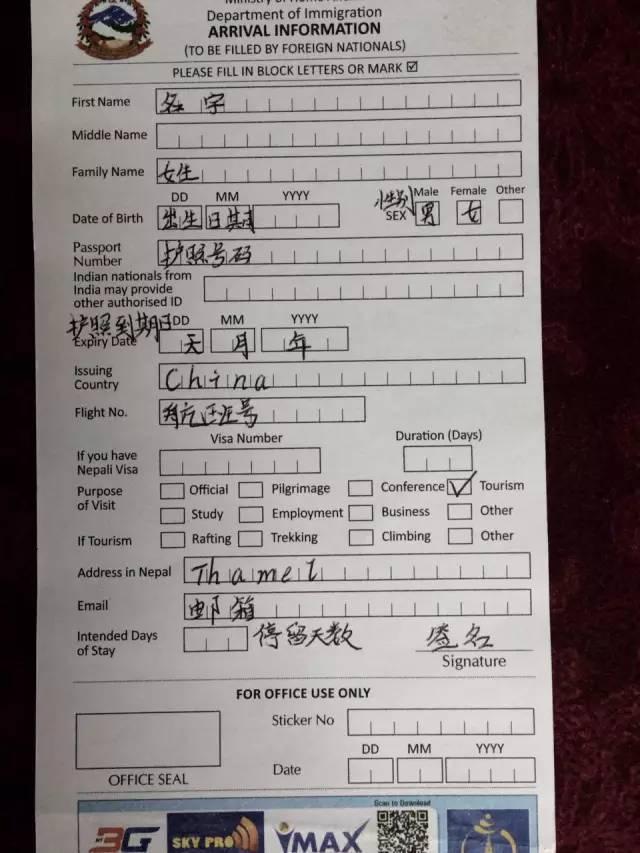 Department of Immigration
ARRIVAL INFORMATION
(TO BE FILLED BY FOREIGN NATIONALS)
PLEASE FILL IN BLOCK LETTERS OR MARK ☑
First Name 名字
Middle Name
Family Name 女生
DD MM YYYY 性别 Male Female Other
Date of Birth 出生日期 SEX 男 女
Passport Number 护照号码
Indian nationals from
India may provide
other authorised ID
护照到期日 DD MM YYYY
Expiry Date 天 月 年
Issuing Country China
Flight No. 号
Visa Number Duration (Days)
If you have
Nepali Visa
Purpose of Visit Official Pilgrimage Conference ✓ Tourism
Study Employment Business Other
If Tourism Rafting Trekking Climbing Other
Address in Nepal Thamel
Email 邮箱
Intended Days of Stay 停留天数 签名
Signature
FOR OFFICE USE ONLY
Sticker No
DD MM YYYY
OFFICE SEAL Date
Scan to Download
3G SKY PRO YMAX